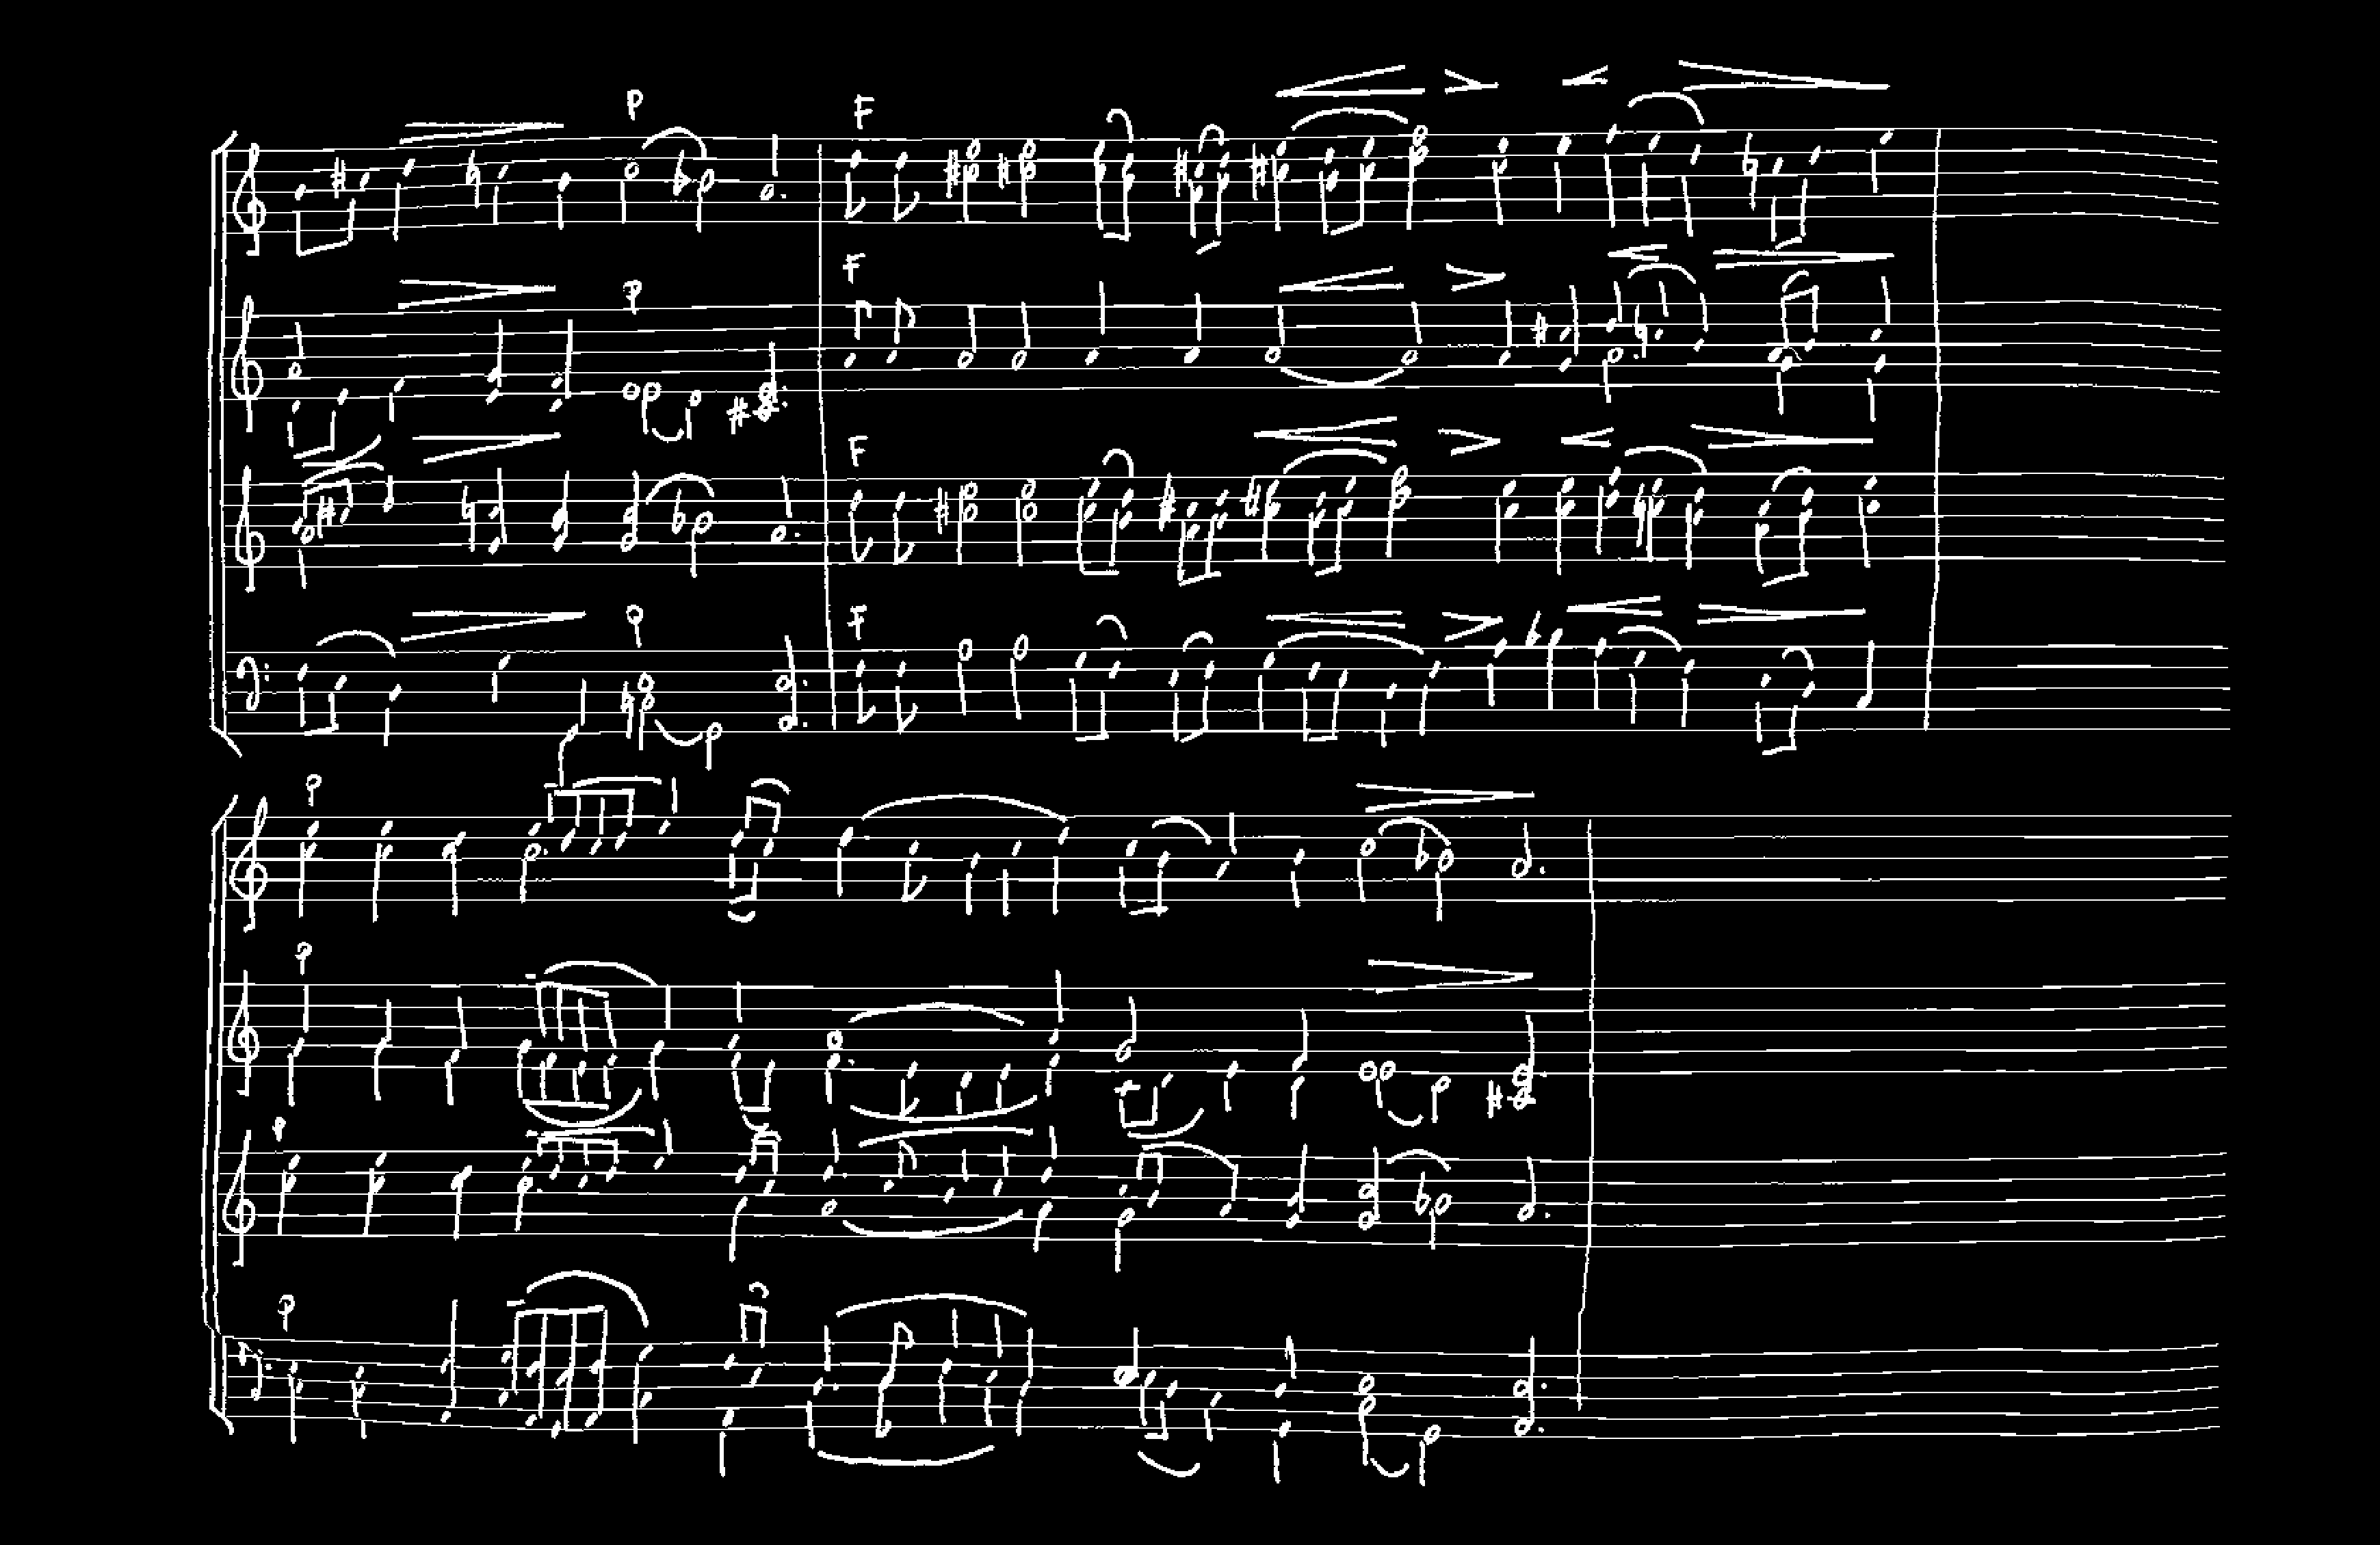 P F
F
P
F
P F
P
P
P
P